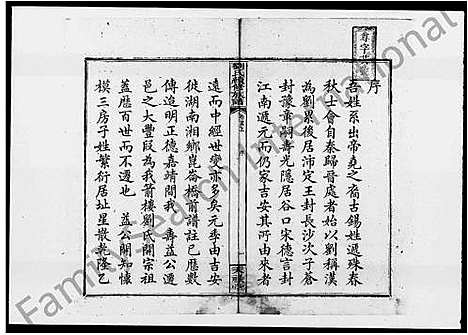 序
吾姓系出帝堯之裔古錫姓遞殊春
秋士會自秦歸晉處者始以劉稱漢
為劉累後居沛定王封長沙次子蒼
封豫章嗣壽光隱居谷口宋德言封
江南遞元而仍家吉安其所由來者
劉氏續修族譜
遠而中經世變亦多矣元季由吉安
徙湖南湘鄉崑崙橋前譜註已歷數
傳迨明正德嘉靖間我 壽益公遷
邑之大豐段為我箭樓劉氏開宗祖
蓋歷百世而不遷也 益公開知懷
模三房子姓繁衍居址星散乾隆乙
FamilySearch International